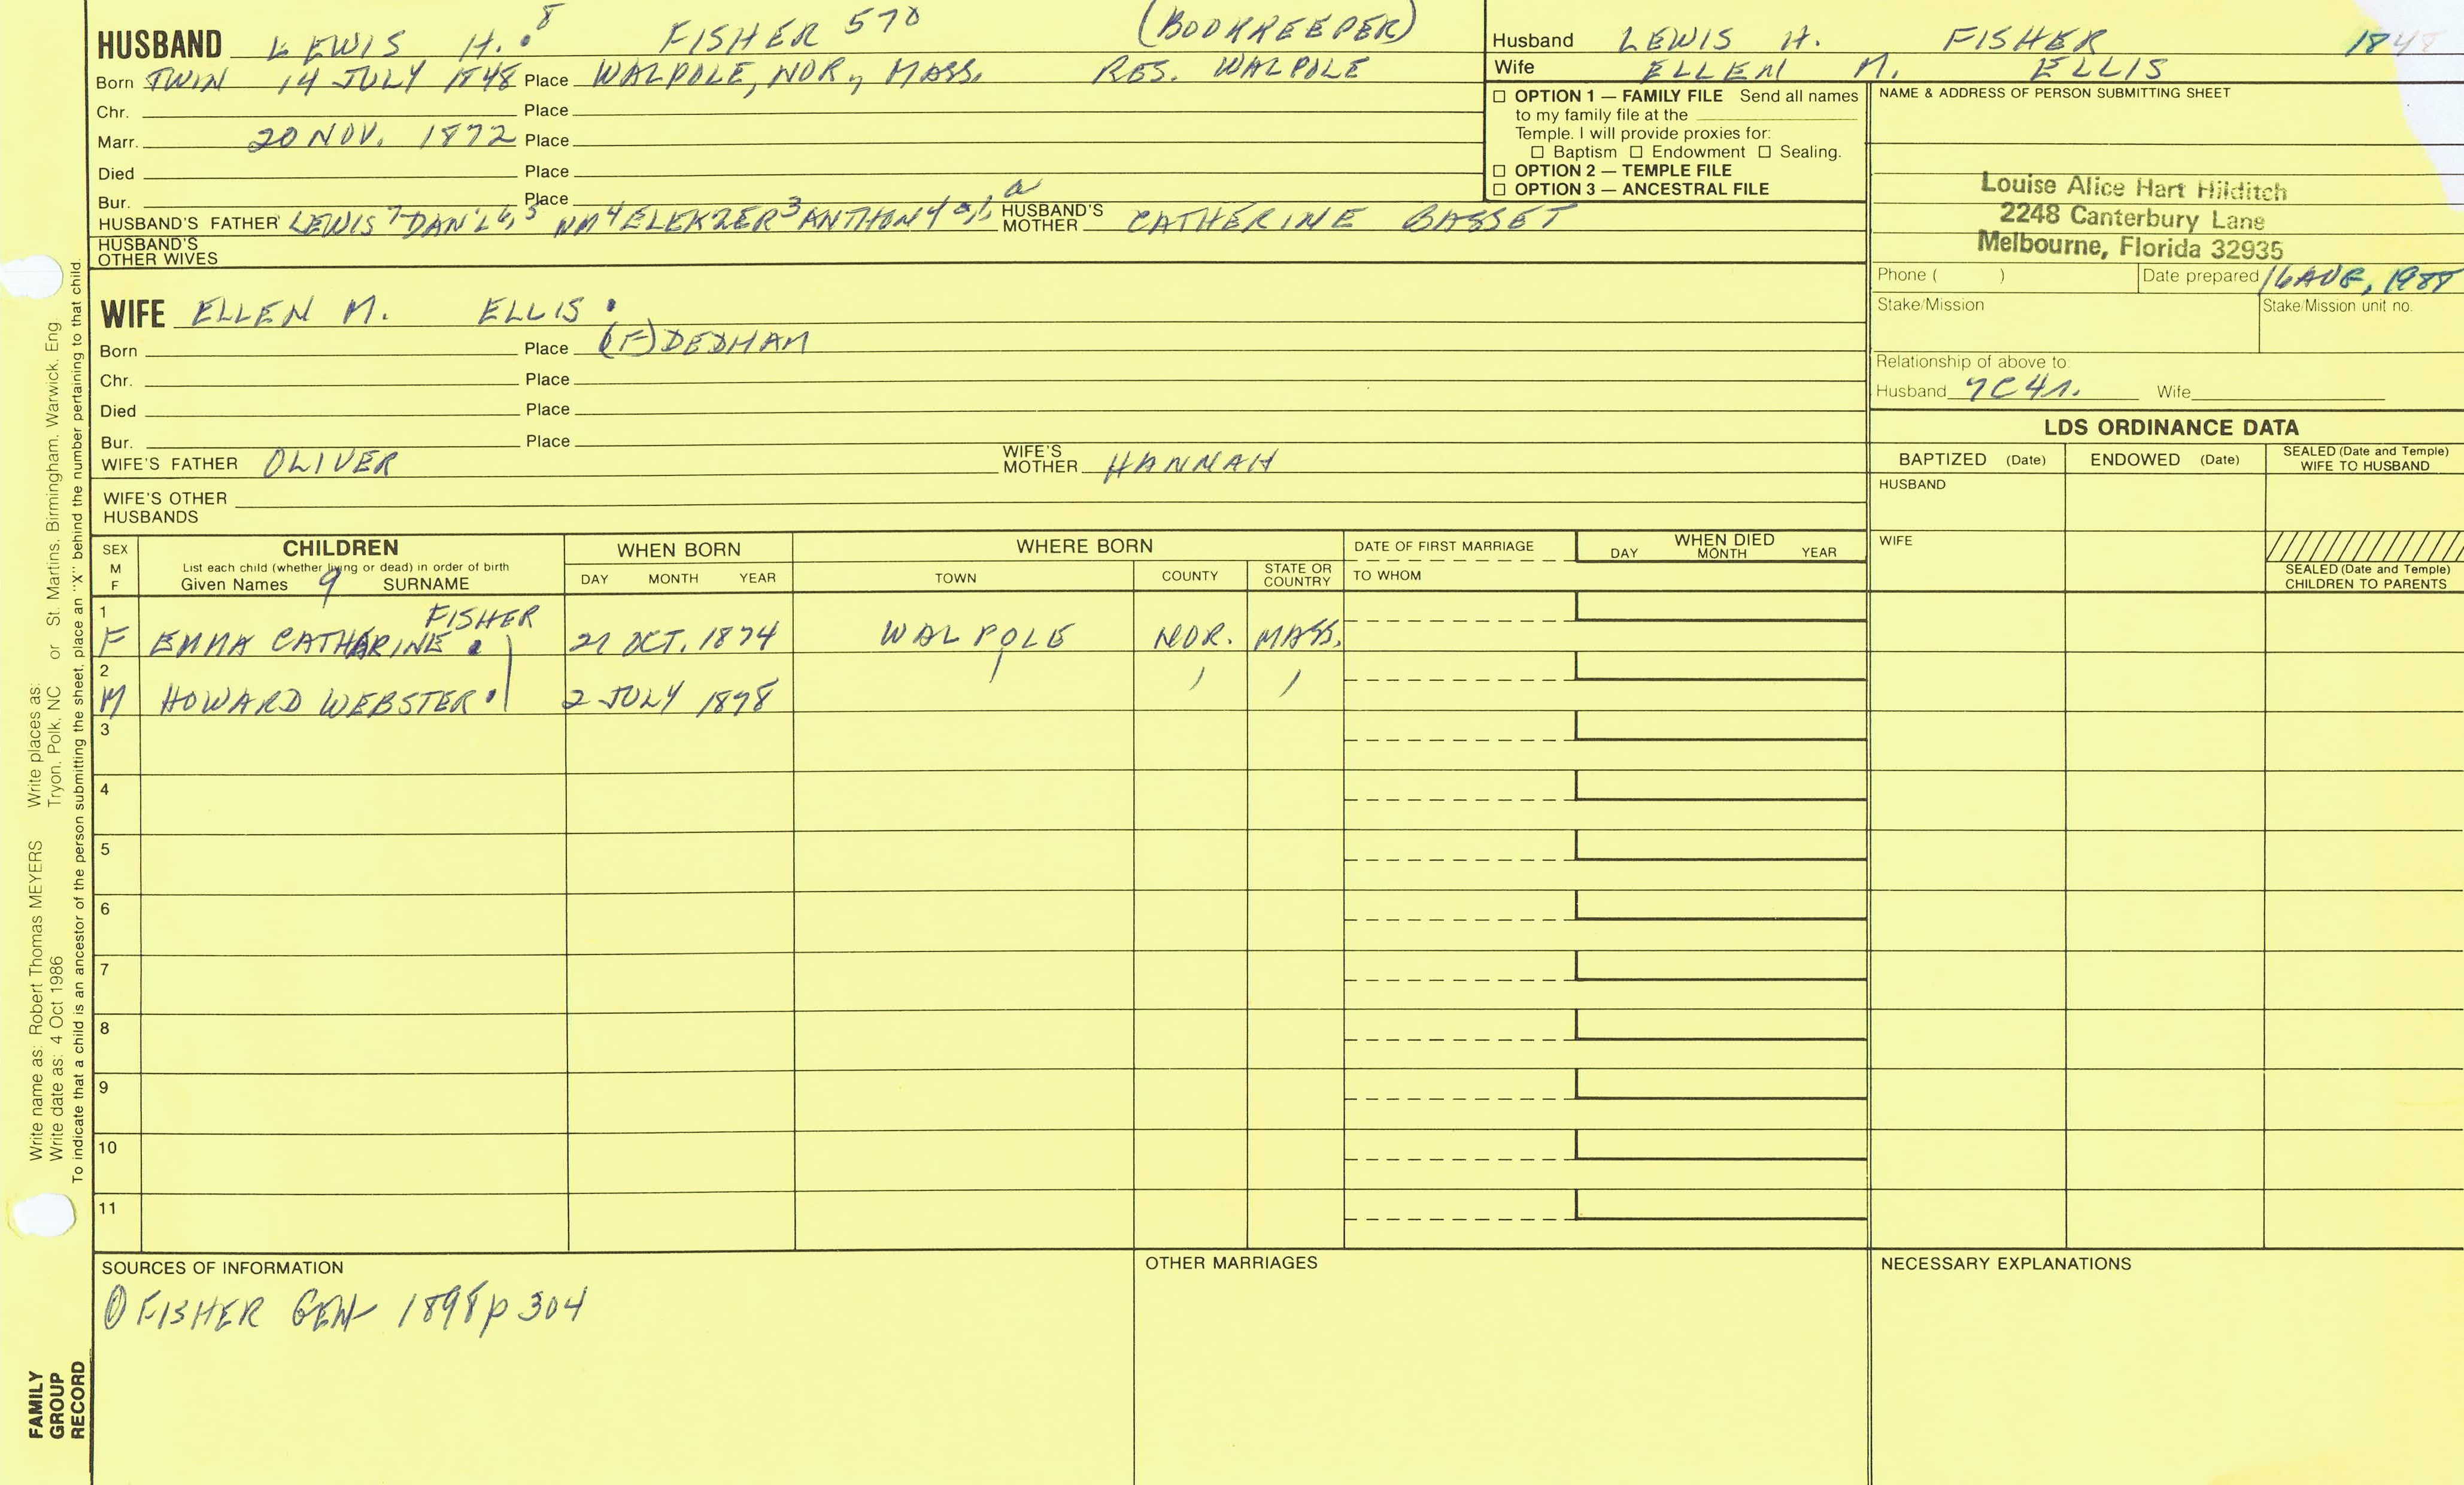 HUSBAND LEWIS H. 8 FISHER 570 (BOOKKEEPER)
Born TWIN 14 JULY 1848 Place WALPOLE, NOR, MASS. RES. WALPOLE
Chr. Place
Marr. 20 NOV. 1872 Place
Died Place
Bur. Place
HUSBAND'S FATHER LEWIS 7 DAN'L 6, 5 WM 4 ELEKZER 3 ANTHONY HUSBAND'S MOTHER CATHERINE BASSET
HUSBAND'S OTHER WIVES
Husband LEWIS H. FISHER 1848
Wife ELLEN M. ELLIS
☐ OPTION 1 — FAMILY FILE Send all names
to my family file at the
Temple. I will provide proxies for:
☐ Baptism ☐ Endowment ☐ Sealing.
☐ OPTION 2 — TEMPLE FILE
☐ OPTION 3 — ANCESTRAL FILE
NAME & ADDRESS OF PERSON SUBMITTING SHEET
Louise Alice Hart Hilditch
2248 Canterbury Lane
Melbourne, Florida 32935
Phone ( ) Date prepared 16 AUG, 1988
Stake/Mission Stake/Mission unit no.
Relationship of above to:
Husband 7C4R. Wife
WIFE ELLEN M. ELLIS
Born Place (F) DEDHAM
Chr. Place
Died Place
Bur. Place
WIFE'S FATHER OLIVER WIFE'S MOTHER HANNAH
WIFE'S OTHER
HUSBANDS
LDS ORDINANCE DATA
BAPTIZED (Date) ENDOWED (Date) SEALED (Date and Temple) WIFE TO HUSBAND
HUSBAND
WIFE
SEALED (Date and Temple) CHILDREN TO PARENTS
SEX M F
CHILDREN
List each child (whether living or dead) in order of birth
Given Names 9 SURNAME
WHEN BORN
DAY MONTH YEAR
WHERE BORN
TOWN COUNTY STATE OR COUNTRY
DATE OF FIRST MARRIAGE
TO WHOM
WHEN DIED
DAY MONTH YEAR
1 FISHER
F EMMA CATHARINE 21 OCT. 1874 WALPOLE NOR. MASS.
2
M HOWARD WEBSTER 2 JULY 1878
3
4
5
6
7
8
9
10
11
SOURCES OF INFORMATION
① FISHER GEN 1898 p 304
OTHER MARRIAGES
NECESSARY EXPLANATIONS
Write name as: Robert Thomas MEYERS Write places as:
Write date as: 4 Oct 1986 Tryon, Polk, NC or St. Martins, Birmingham, Warwick, Eng
To indicate that a child is an ancestor of the person submitting the sheet, place an "X" behind the number pertaining to that child.
FAMILY
GROUP
RECORD